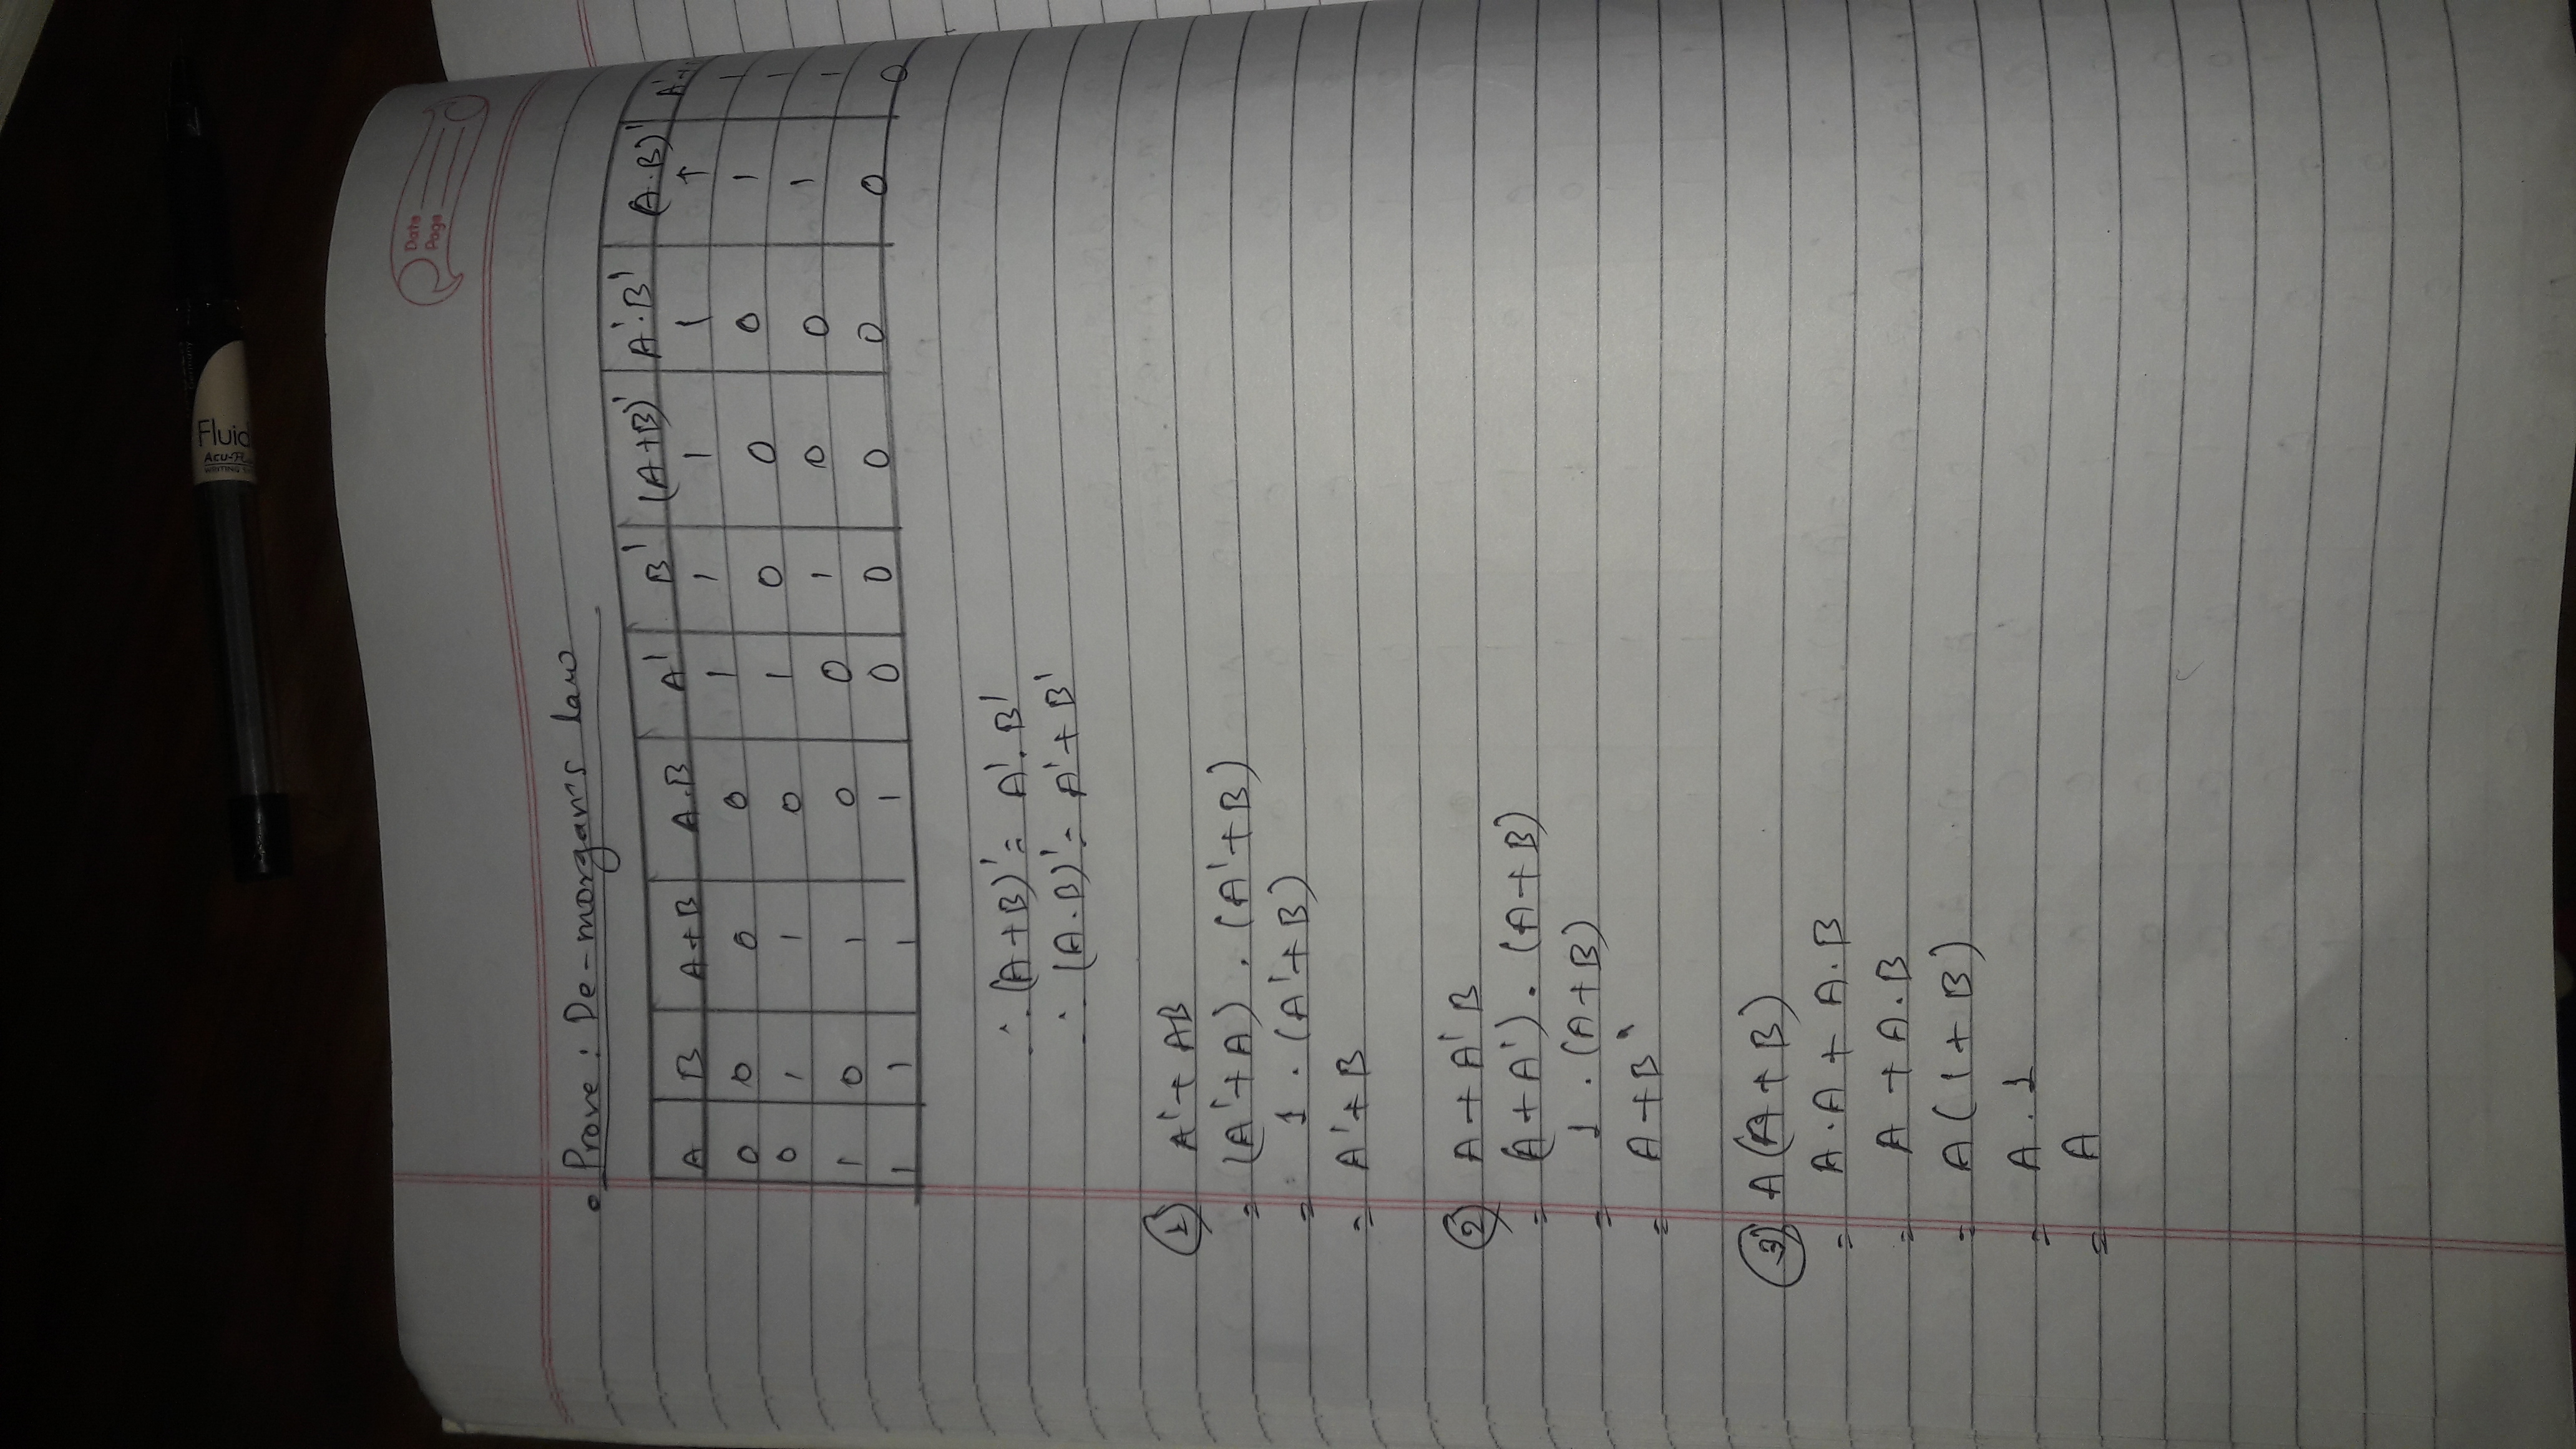 Fluid
Germany
Date
Page
• Prove : De-morgan's law
A B A+B A.B A' B' (A+B)' A'.B' (A.B)'
0 0 0 0 1 1 1 1 1 1
0 1 1 0 1 0 0 0 1 1
1 0 1 0 0 1 0 0 1 1
1 1 1 1 0 0 0 0 0 0
∴ (A+B)' = A'.B'
∴ (A.B)' = A'+B'
① A'+ AB
= (A'+A) . (A'+B)
= 1 . (A'+B)
= A'+B
② A + A'B
= (A+A') . (A+B)
= 1 . (A+B)
= A+B
③ A(A+B)
= A.A + A.B
= A + A.B
= A(1+B)
= A.1
= A